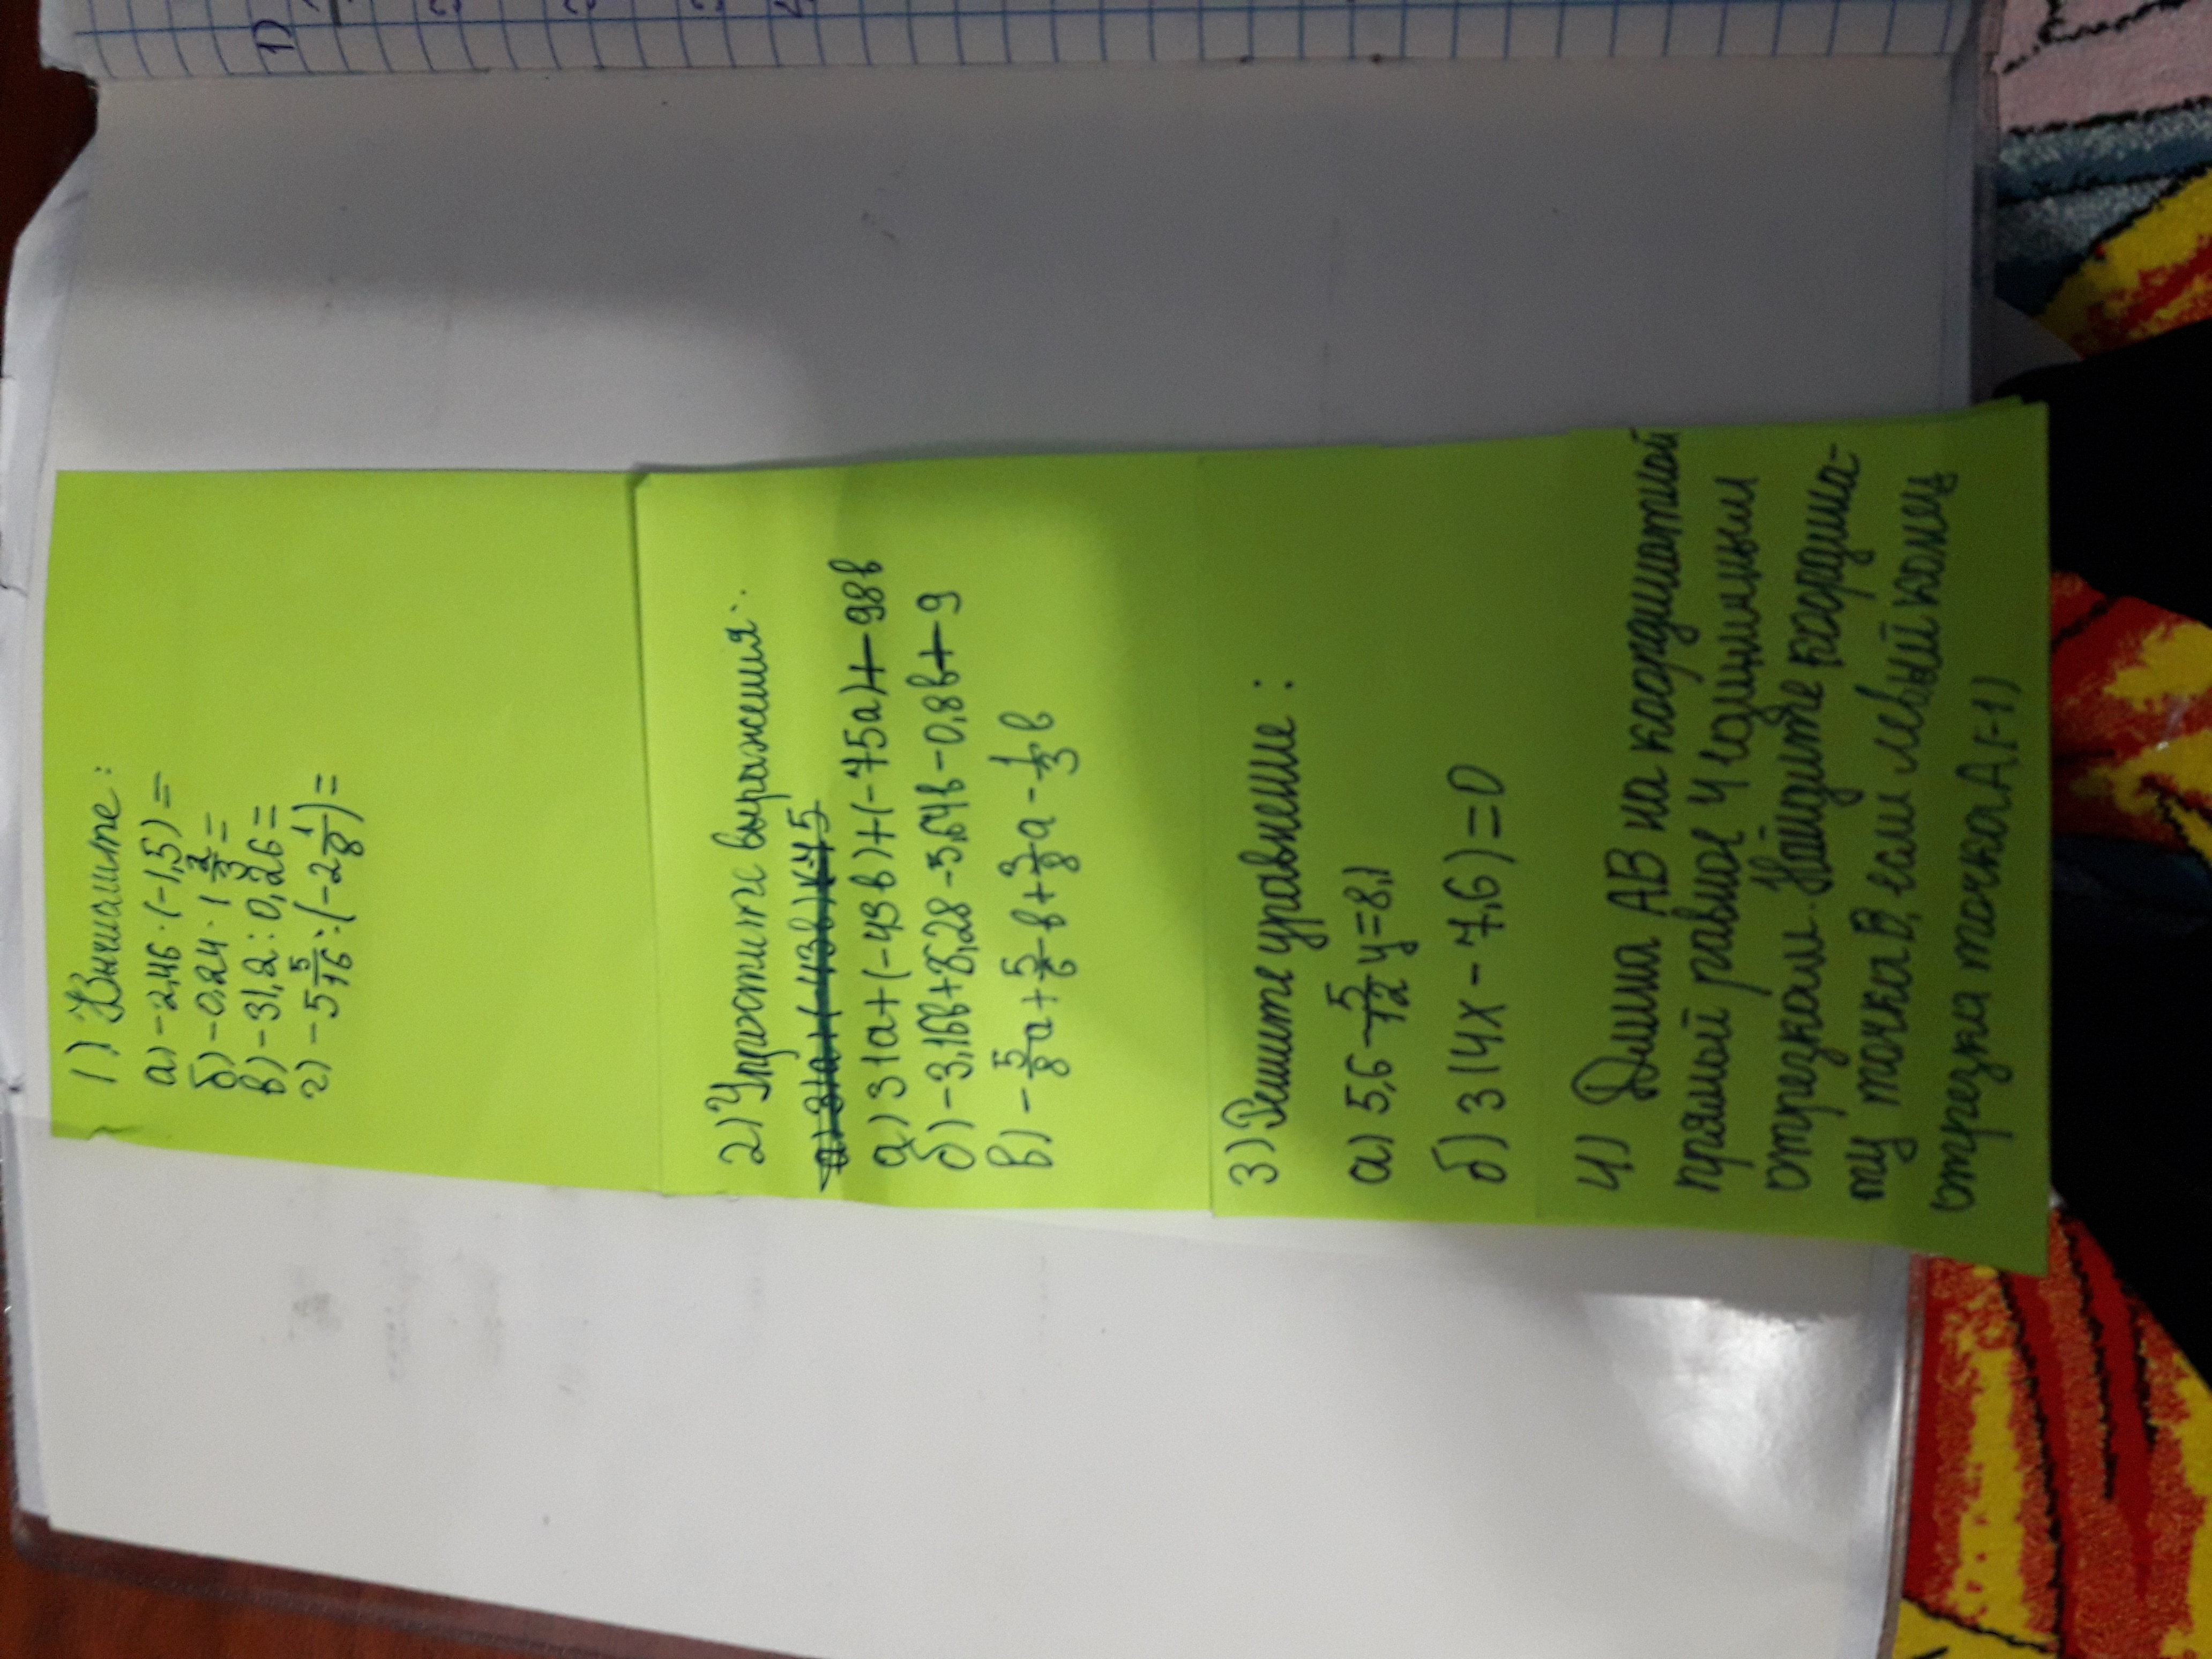 1) Вычислите:
а) -2,46 · (-1,5) =
б) -0,24 · 1 2/3 =
в) -31,2 : 0,26 =
г) -5 5/16 : (-2 1/8) =
2) Упростите выражения:
а) 31а+(-43в)+(-75а)+98в
б) -3,16в+8,28-5,64в-0,8в+9
в) -5/8а+5/6в+3/8а-1/3в
3) Решите уравнение:
а) 5,6-5/12у=8,1
б) 3(4х-7,6)=0
4) Длина АВ на кординатной
прямой равное 4 единичным
отрезкам. Найдите кордина-
ту точка В, если левый конец
отрезка точка А(-1)
1)